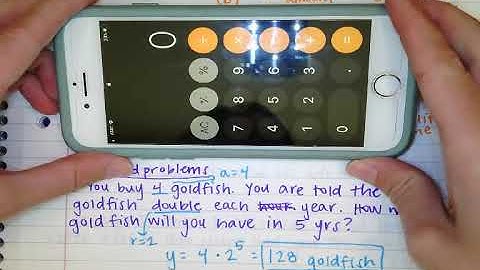 0
AC 7 4 1 0
% 8 5 2
% 9 6 3 .
÷ × − + =
d problems a=4
You buy 4 goldfish. You are told the
goldfish double each year. How
goldfish will you have in 5 yrs?
r=2
y = 4 · 2⁵ = 128 goldfish